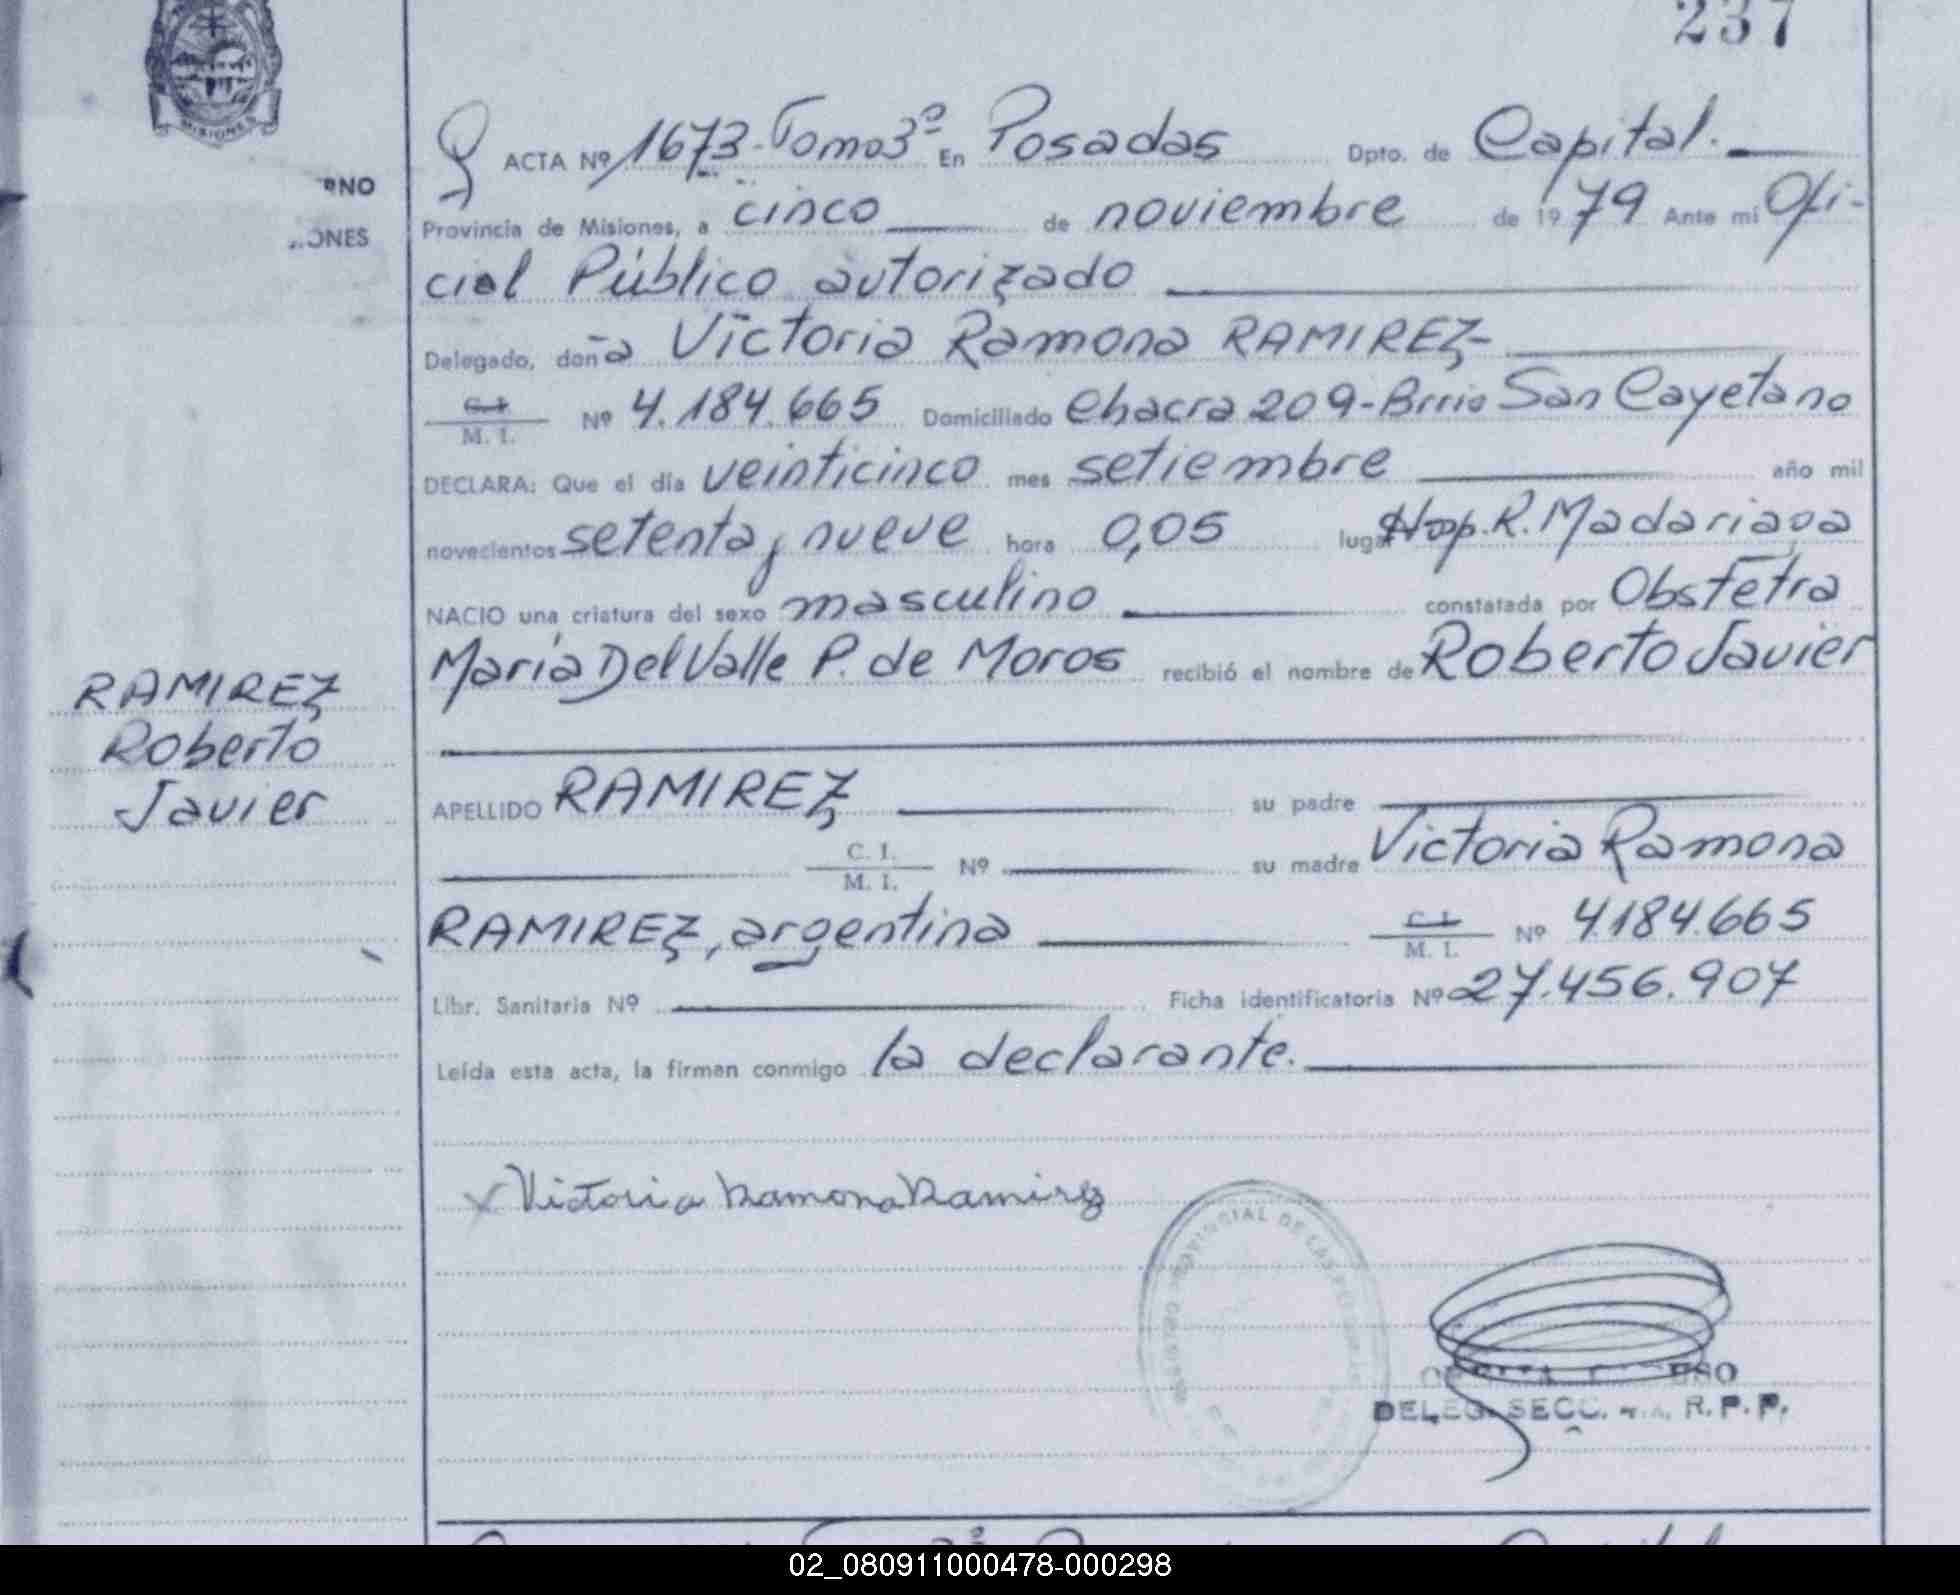 237
MISIONES
ACTA Nº 1673-Tomo 3º En Posadas Dpto. de Capital.
Provincia de Misiones, a cinco de noviembre de 1979 Ante mí Ofi-
cial Público autorizado
Delegado, doña Victoria Ramona RAMIREZ-
C.I. M. I. Nº 4.184.665 Domiciliado Chacra 209-Brrio San Cayetano
DECLARA: Que el día veinticinco mes setiembre año mil
novecientos setenta y nueve hora 0,05 lugar Hosp. R. Madariaga
NACIO una criatura del sexo masculino constatada por Obstetra
María Del Valle P. de Moros recibió el nombre de Roberto Javier
RAMIREZ
Roberto
Javier
APELLIDO RAMIREZ su padre
C. I. M. I. Nº su madre Victoria Ramona
RAMIREZ, argentina C.I. M. I. Nº 4.184.665
Libr. Sanitaria Nº Ficha identificatoria Nº 27.456.907
Leída esta acta, la firman conmigo la declarante.
Victoria Ramona Ramirez
PROVINCIAL DE LAS PERSONAS
DELEG. SECC. R. P. P.
02_080911000478-000298